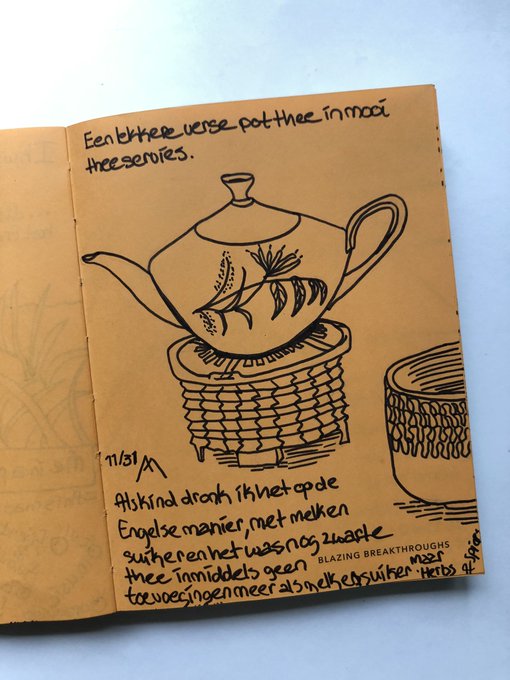 Een lekkere verse pot thee in mooi
theeservies.
11/31
Als kind dronk ik het op de
Engelse manier, met melk en
suiker en het was nog zwarte
BLAZING BREAKTHROUGHS
thee inmiddels geen
toevoegingen meer als melk en suiker maar
Herbs